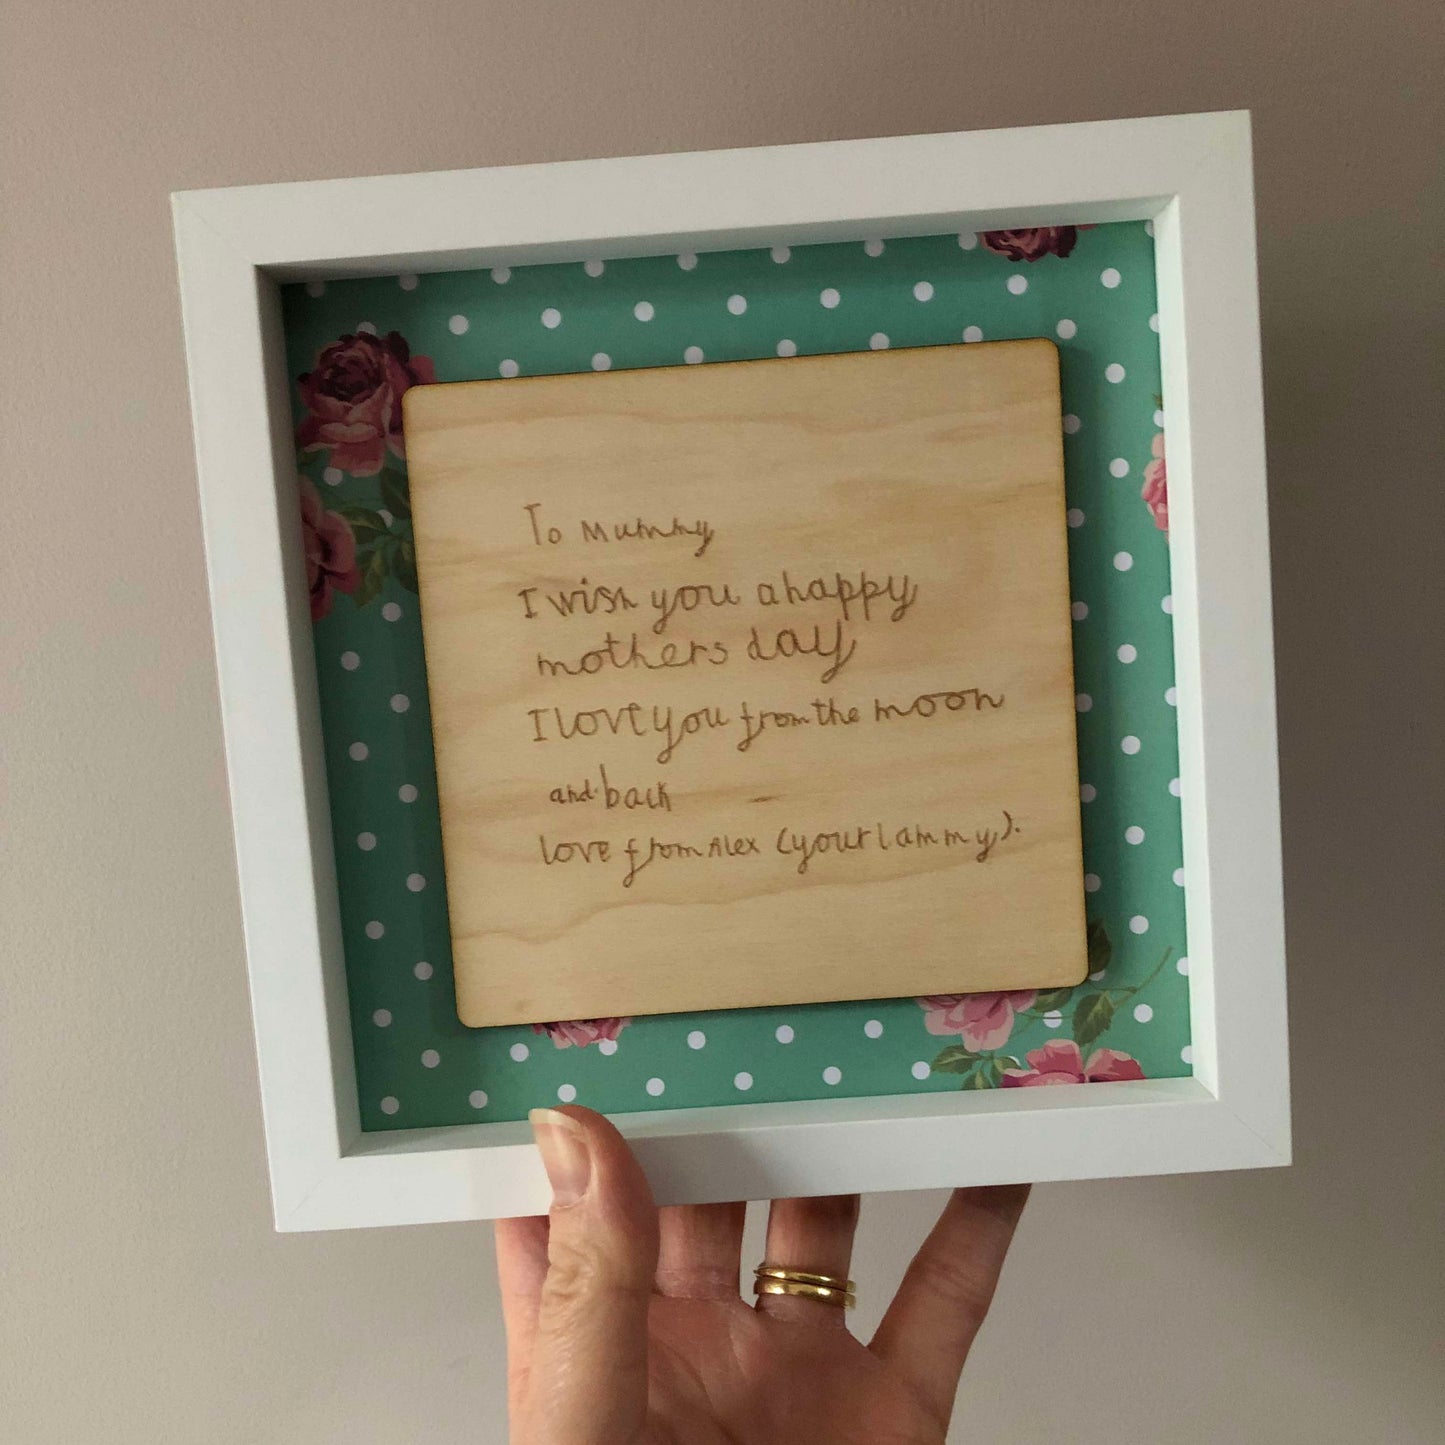 To Mummy
I wish you a happy
mothers day
I love you from the moon
and back
love from Alex (your lammy).